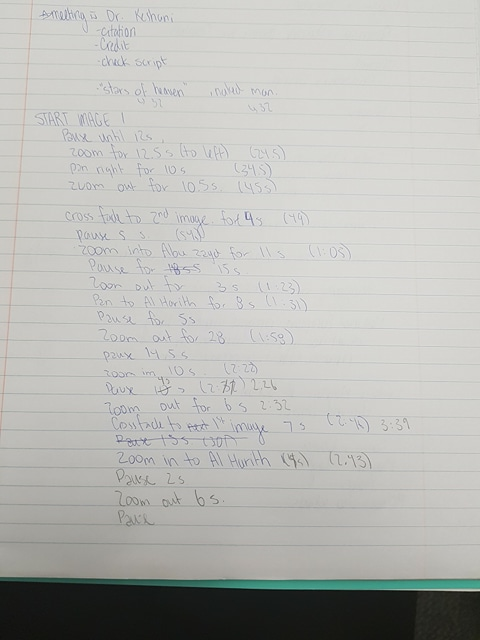 meeting w Dr. Keshani
- citation
- Credit
- check script
- "stars of heaven" , naked man
↳ 32 ↳ 32
START IMAGE 1
Pause until 12s,
Zoom for 12.5s (to left) (24s)
pan right for 10s (34s)
zoom out for 10.5s. (45s)
cross fade to 2nd image for 4s (49)
pause 5s (54s)
zoom into Abu zayd for 11s (1:05)
Pause for 15s
Zoom out for 3s (1:23)
Pan to Al Harith for 8s (1:31)
Pause for 5s
Zoom out for 28 (1:59)
pause 14.5s
zoom in 10s. (2:22)
Pause s 2.26
Zoom out for 6s 2:32
to 1st image 7s 3:39
Pause 15s
Zoom in to Al Harith (4s) (2.43)
Pause 2s
Zoom out 6s.
Pause